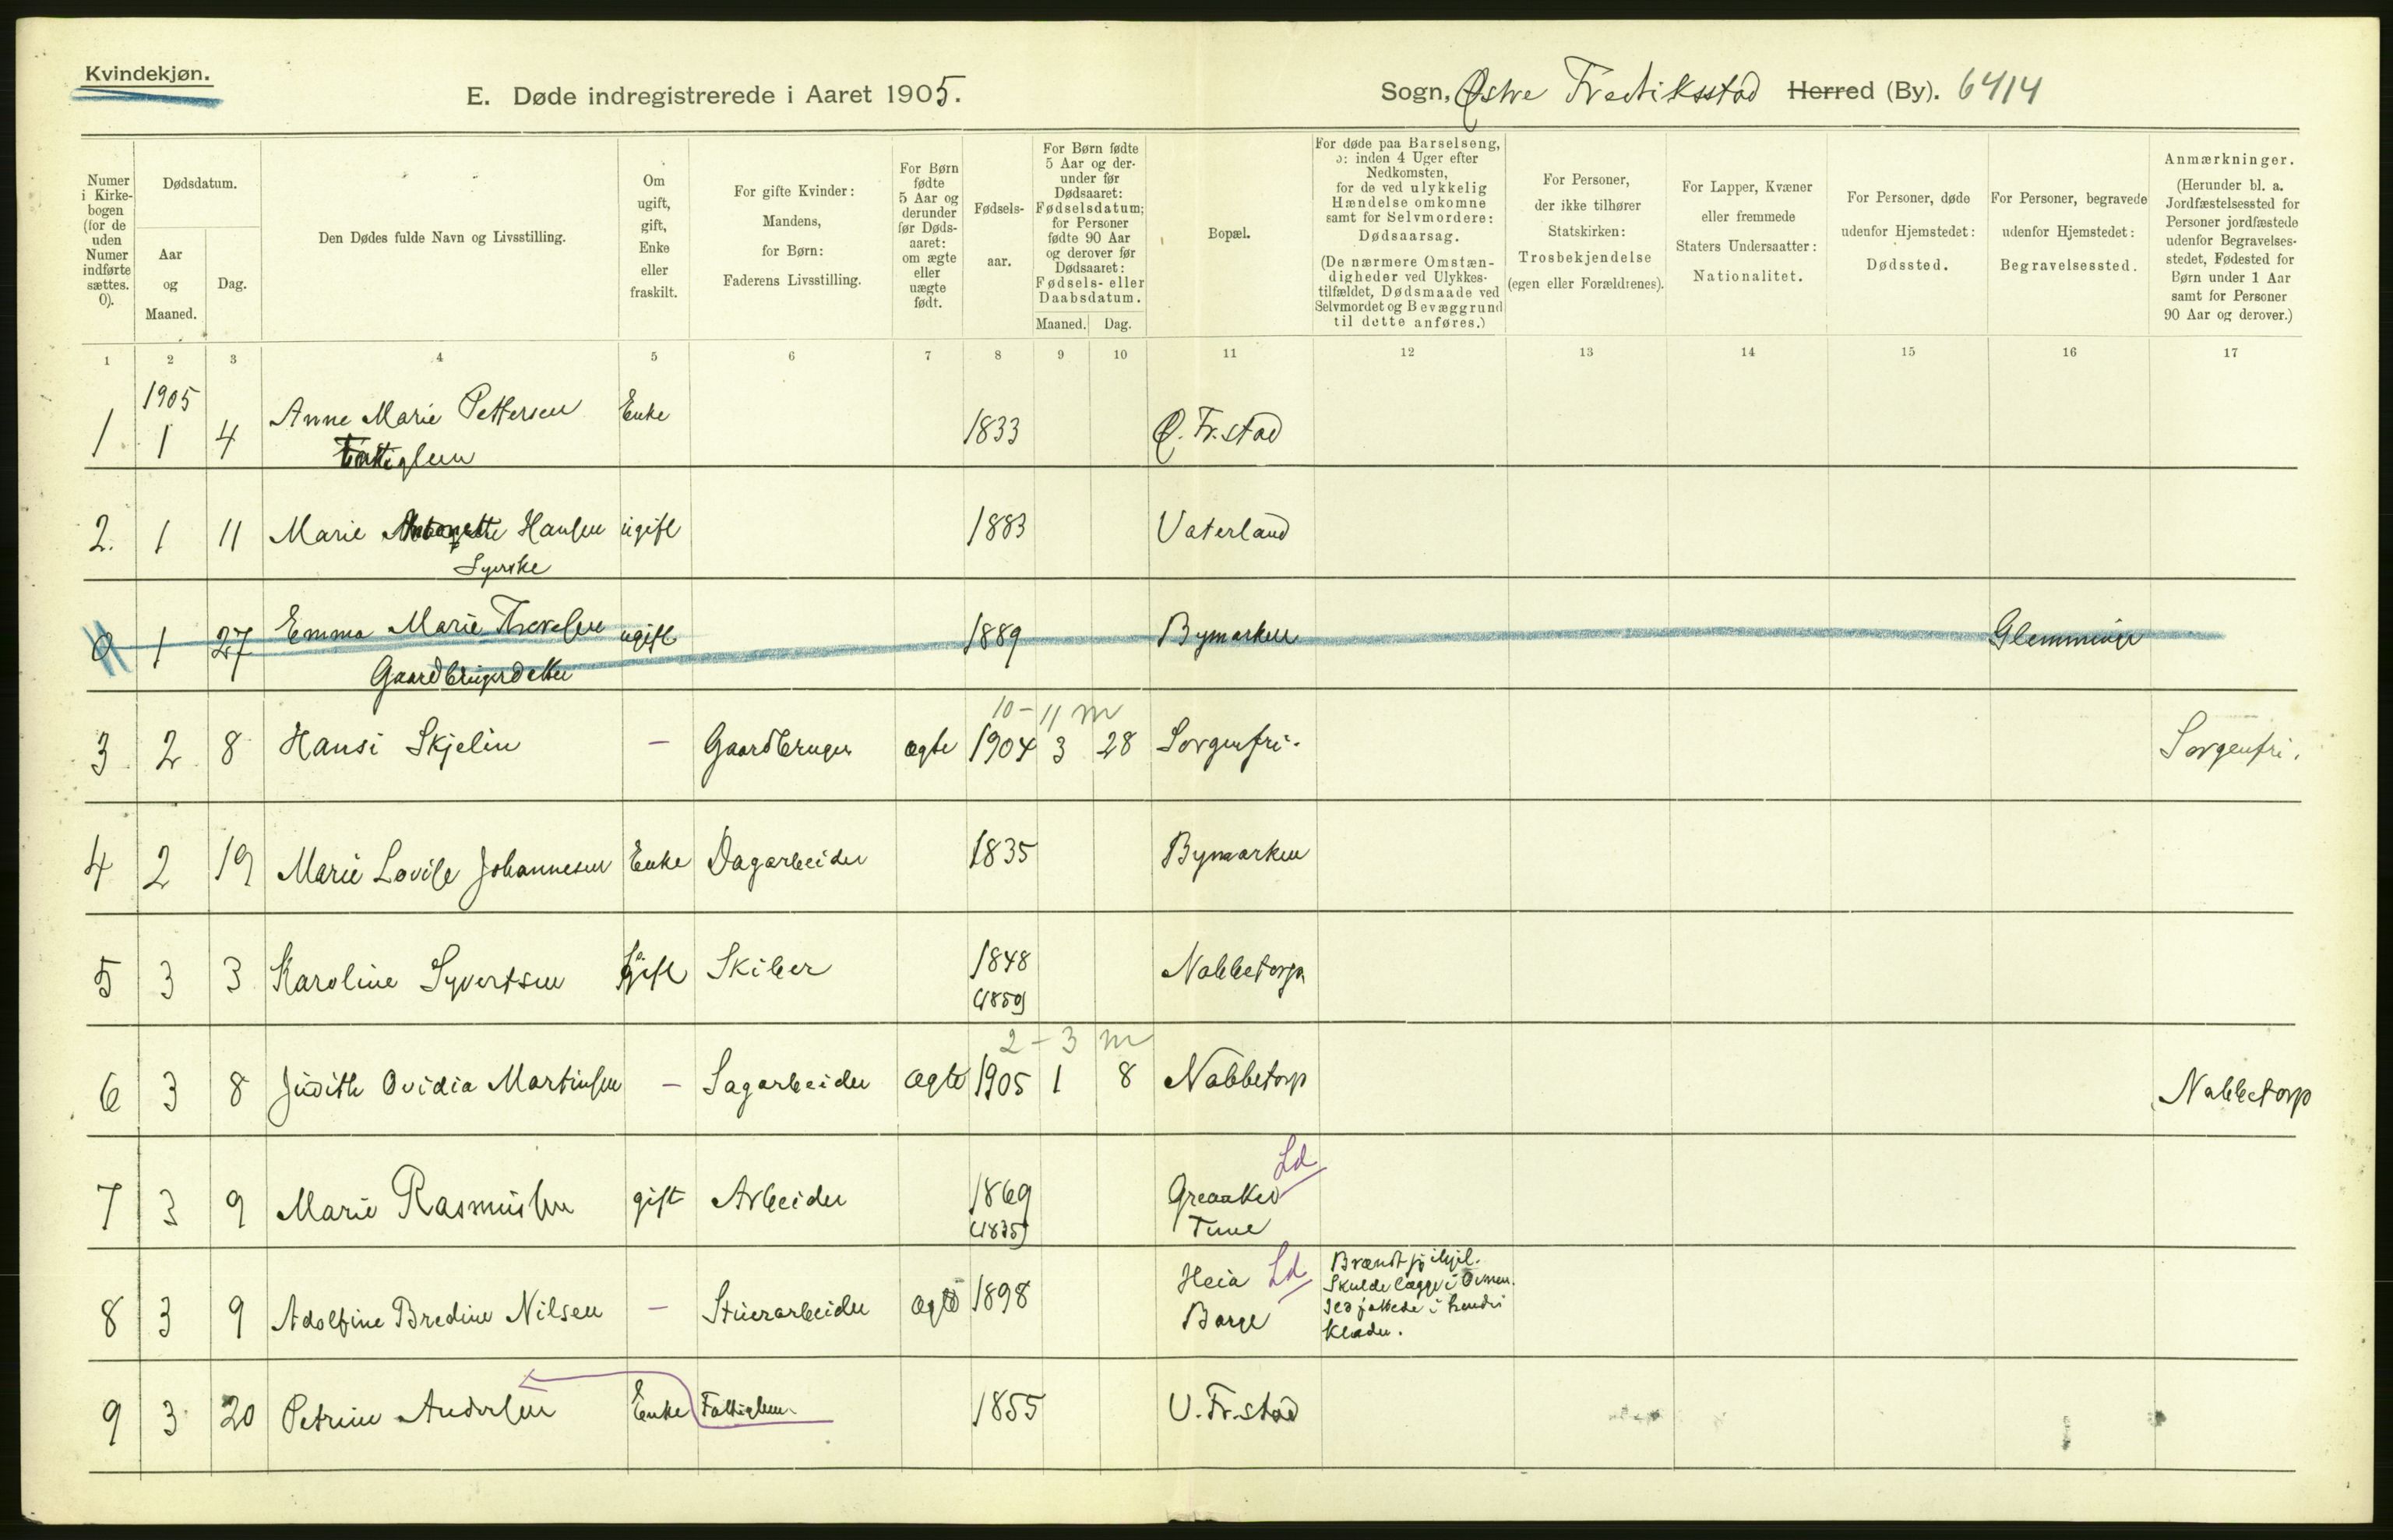 Kvindekjøn.
E. Døde indregistrerede i Aaret 1905.
Sogn, Østre Fredriksstad Herred (By). 6414
Numer i Kirkebogen (for de uden Numer indførte sættes. 0).
Dødsdatum.
Aar og Maaned.
Dag.
Den Dødes fulde Navn og Livsstilling.
Om ugift, gift, Enke eller fraskilt.
For gifte Kvinder: Mandens, for Børn: Faderens Livsstilling.
For Børn fødte 5 Aar og derunder før Dødsaaret: om ægte eller uægte født.
Fødselsaar.
For Børn fødte 5 Aar og derunder før Dødsaaret: Fødselsdatum; for Personer fødte 90 Aar og derover før Dødsaaret: Fødsels- eller Daabsdatum.
Maaned. Dag.
Bopæl.
For døde paa Barselseng, ɔ: inden 4 Uger efter Nedkomsten, for de ved ulykkelig Hændelse omkomne samt for Selvmordere: Dødsaarsag.
(De nærmere Omstændigheder ved Ulykkestilfældet, Dødsmaade ved Selvmordet og Bevæggrund til dette anføres.)
For Personer, der ikke tilhører Statskirken: Trosbekjendelse (egen eller Forældrenes).
For Lapper, Kvæner eller fremmede Staters Undersaatter: Nationalitet.
For Personer, døde udenfor Hjemstedet: Dødssted.
For Personer, begravede udenfor Hjemstedet: Begravelsessted.
Anmærkninger.
(Herunder bl. a. Jordfæstelsessted for Personer jordfæstede udenfor Begravelsesstedet, Fødested for Børn under 1 Aar samt for Personer 90 Aar og derover.)
1 2 3 4 5 6 7 8 9 10 11 12 13 14 15 16 17
1905
1 1 4 Anne Marie Pettersen Enke 1833 Ø. Fr.stad
Fattiglem
2. 1 11 Marie Antonette Hansen ugift 1883 Vaterland
Syerske
0 1 27 Emma Marie Thorvalsen ugift 1889 Bymarken Glemminge
Gaardbrugerdatter
10-11 m
3 2 8 Hansi Skjelin — Gaardbruger ægte 1904 3 28 Sorgenfri. Sorgenfri.
4 2 19 Marie Lovise Johannesen Enke Dagarbeider 1835 Bymarken
5 3 3 Karoline Syvertsen gift Skiber 1848 Nabbetorp
(1850)
2-3 m
6 3 8 Judith Ovidia Martinsen — Sagarbeider ægte 1905 1 8 Nabbetorp Nabbetorp
Ld
7 3 9 Marie Rasmussen gift Arbeider 1869 Greaaker
(1835) Tune
8 3 9 Adolfine Bredine Nilsen — Stuerarbeider ægte 1898 Heia Ld
Borge
Brændt sig ihjel.
Skulde lægge i Ovnen.
Ild fattede i hendes
Klæder.
9 3 20 Petrine Andersen Enke Fattiglem. 1855 V. Fr.stad